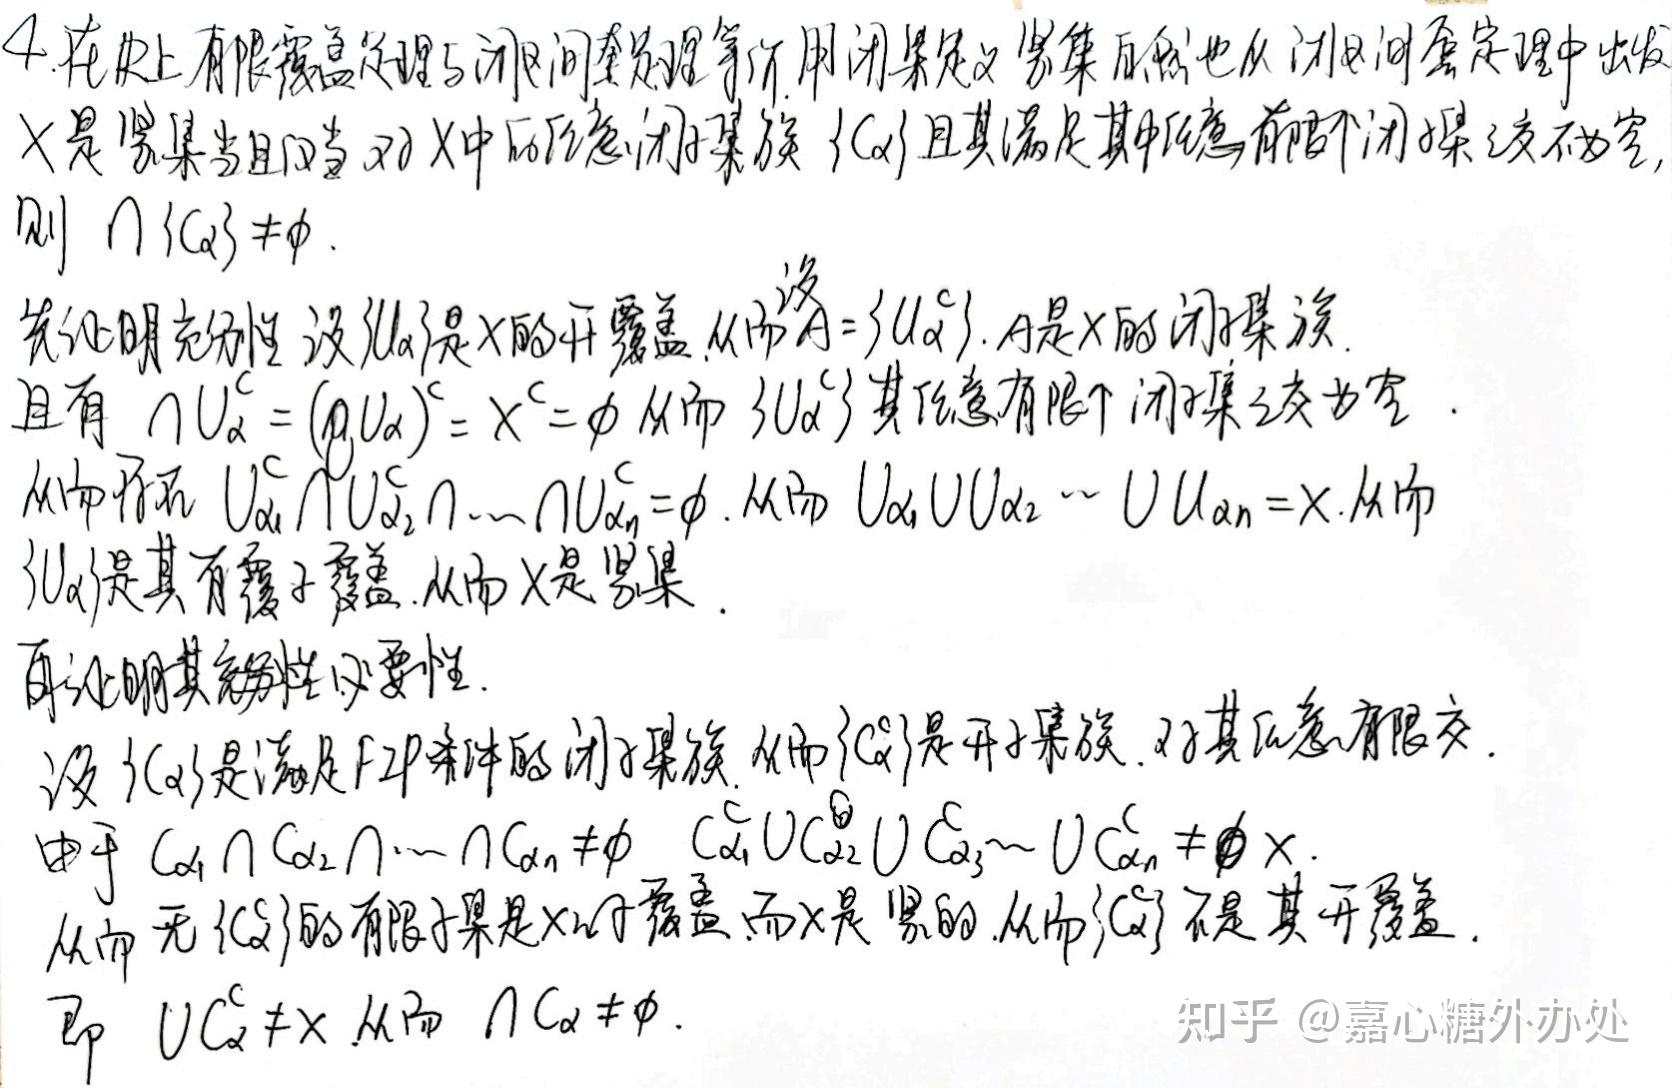 4.在R上有限覆盖定理与闭区间套定理等价.用闭集定义紧集自然也从闭区间套定理中出发
X是紧集当且仅当对X中的任意闭子集族{Cα}且其满足其中任意有限个闭子集之交不为空,
则 ∩{Cα}≠φ.
先证明充分性 设{Uα}是X的开覆盖.从而设A={Uα^c}.A是X的闭子集族.
且有 ∩Uα^c=(∪Uα)^c=X^c=φ 从而{Uα^c}其任意有限个闭子集之交为空.
从而存在 Uα₁^c∩Uα₂^c∩…∩Uαn^c=φ.从而 Uα₁∪Uα₂…∪Uαn=X.从而
{Uα}是其有覆子覆盖.从而X是紧集.
再证明其必要性.
设{Cα}是满足FIP条件的闭子集族.从而{Cα^c}是开子集族.对其任意有限交.
由于 Cα₁∩Cα₂∩…∩Cαn≠φ Cα₁^c∪Cα₂^c∪Cα₃^c…∪Cαn^c≠X.
从而无{Cα^c}的有限子集是X的子覆盖.而X是紧的.从而{Cα^c}不是其开覆盖.
即 ∪Cα^c≠X.从而 ∩Cα≠φ.
知乎 @嘉心糖外办处